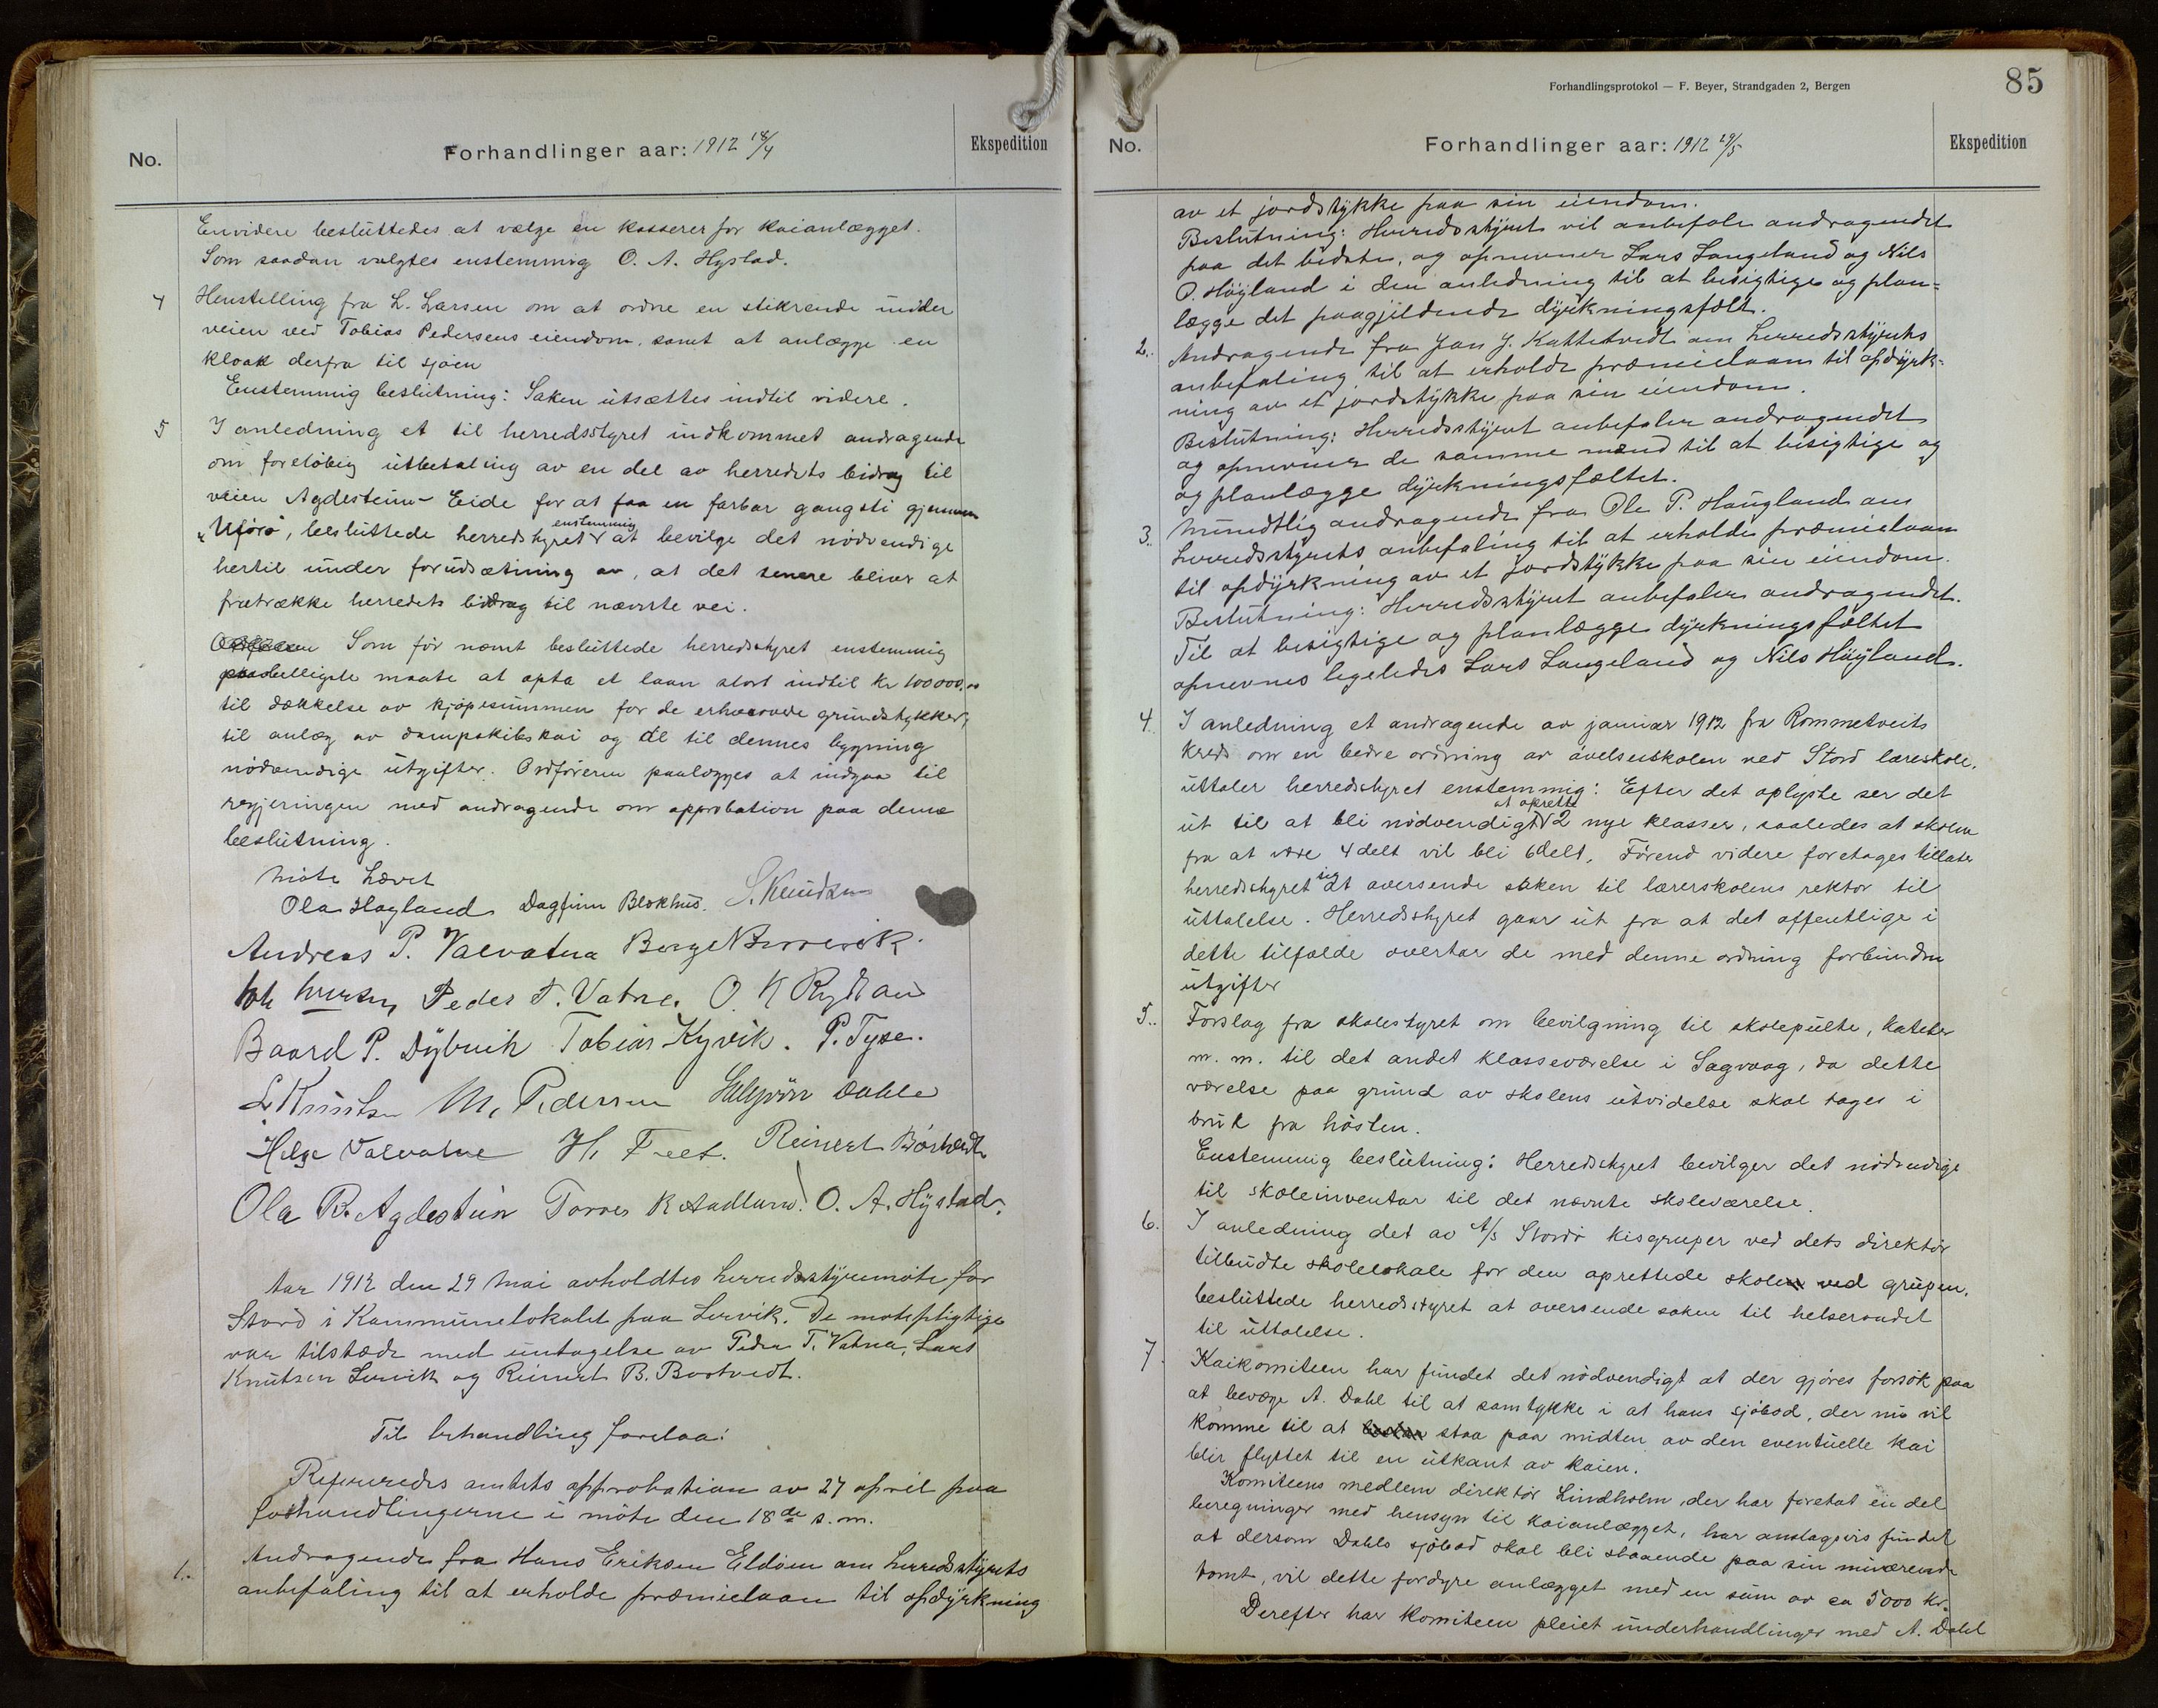 No.
Forhandlinger aar: 1912 18/4
Ekspedition
Envidere besluttedes at vælge en kasserer for kaianlægget.
Som saadan valgtes enstemmig O. A. Hystad.
4 Henstilling fra L. Larsen om at ordne en stikrende under
veien ved Tobias Pedersens eiendom, samt at anlægge en
kloak derfra til sjøen
Enstemmig beslutning: Saken utsættes indtil videre.
5 I anledning et til herredsstyret indkommet andragende
om foreløbig utbetaling av en del av herredets bidrag til
veien Agdestein - Eide for at faa en farbar gangsti gjennem
"Uføro", besluttede herredstyret enstemmig at bevilge det nødvendige
hertil under forudsætning av, at det senere bliver at
fratrække herredets bidrag til nævnte vei.
Som før næmt besluttede herredsstyret enstemmig
paa belligste maate at opta et laan stort indtil kr 100000,00
til dækkelse av kjøpesummen for de erhvervede grundstykker,
til anlæg av dampskibskai og de til dennes bygning
nødvendige utgifter. Ordføreren paalægges at indgaa til
regjeringen med andragende om approbation paa denne
beslutning.
Møte hævet
Ola Høgland Dagfinn Blokhus. S. Knudsen
Andreas P. Valvatna Berge N
Peder T. Vatne. O. K. Rydland
Baard P. Dybvik Tobias Kyvik. P. Tyse.
L Knutsen M. Pedersen Dahle
Helge Valvatne H. Reinert Børtvedt
Ola R. Agdestein Torres K Aadland. O. A. Hystad.
Aar 1912 den 29 mai avholdtes herredsstyremøte for
Stord i Kommunelokalet paa Lervik. De møtepligtige
var tilstæde med untagelse av Peder T. Vatna, Lars
Knutsen Lervik og Reinert B. Bortvedt.
Til behandling forelaa:
Refereredes amtets approbation av 27 april paa
forhandlingerne i møte den 18de s. m.
1. Andragende fra Hans Eriksen Eldøen om herredsstyrets
anbefaling til at erholde præmielaan til opdyrkning
Forhandlingsprotokol — F. Beyer, Strandgaden 2, Bergen
85
No.
Forhandlinger aar: 1912 29/5
Ekspedition
av et jordstykke paa sin eiendom.
Beslutning: Herredsstyret vil anbefale andragendet
paa det bedste, og opnevner Lars Langeland og Nils
O. Høyland i den anledning til at besigtige og plan=
lægge det paagjeldende dyrkningsfælt.
2. Andragende fra Jan J. Kattetvedt om herredsstyrets
anbefaling til at erholde præmielaan til opdyrk=
ning av et jordstykke paa sin eiendom.
Beslutning: Herredsstyret anbefaler andragendet
og opnevner de samme mænd til at besigtige og
og planlægge dyrkningsfæltet.
3. Mundtlig andragende fra Ole P. Haugland om
herredsstyrets anbefaling til at erholde præmielaan
til opdyrkning av et jordstykke paa sin eiendom.
Beslutning: Herredsstyret anbefaler andragendet.
Til at besigtige og planlægge dyrkningsfæltet
opnevnes ligeledes Lars Langeland og Nils Høyland.
4. I anledning et andragende av januar 1912 fra Rommetveits
kreds om en bedre ordning av øvelsesskolen ved Stord læreskole,
uttaler herredsstyret enstemmig: Efter det oplyste ser det
ut til at bli nødvendigt at oprette 2 nye klasser, saaledes at skolen
fra at være 4 delt vil bli 6 delt. Førend videre foretages tillater
herredsstyret sig at oversende saken til lærerskolens rektor til
uttalelse. Herredsstyret gaar ut fra at det offentlige i
dette tilfælde overtar de med denne ordning forbundne
utgifter
5. Forslag fra skolestyret om bevilgning til skolepulte, kateter
m. m. til det andet klasseværelse i Sagvaag, da dette
værelse paa grund av skolens utvidelse skal tages i
bruk fra høsten.
Enstemmig beslutning: Herredsstyret bevilger det nødvendige
til skoleinventar til det nævnte skoleværelse.
6. I anledning det av A/s Stordø kisgruper ved dets direktør
tilbudte skolelokale for den oprettede skole ved grupen,
besluttede herredsstyret at oversende saken til helseraadet
til uttalelse.
7. Kaikomiteen har fundet det nødvendigt at der gjøres forsøk paa
at bevæge A. Dahl til at samtykke i at hans sjøbod, der nu vil
komme til at staa paa midten av den eventuelle kai
blir flyttet til en utkant av kaien.
Komiteens medlem direktør Lindholm, der har foretat en del
beregninger med hensyn til kaianlægget, har anslagsvis fundet
at dersom Dahls sjøbod skal bli staaende paa sin nuværende
tomt, vil dette fordyre anlægget med en sum av ca 5000 kr.
Derefter har komiteen pleiet underhandlinger med A. Dahl